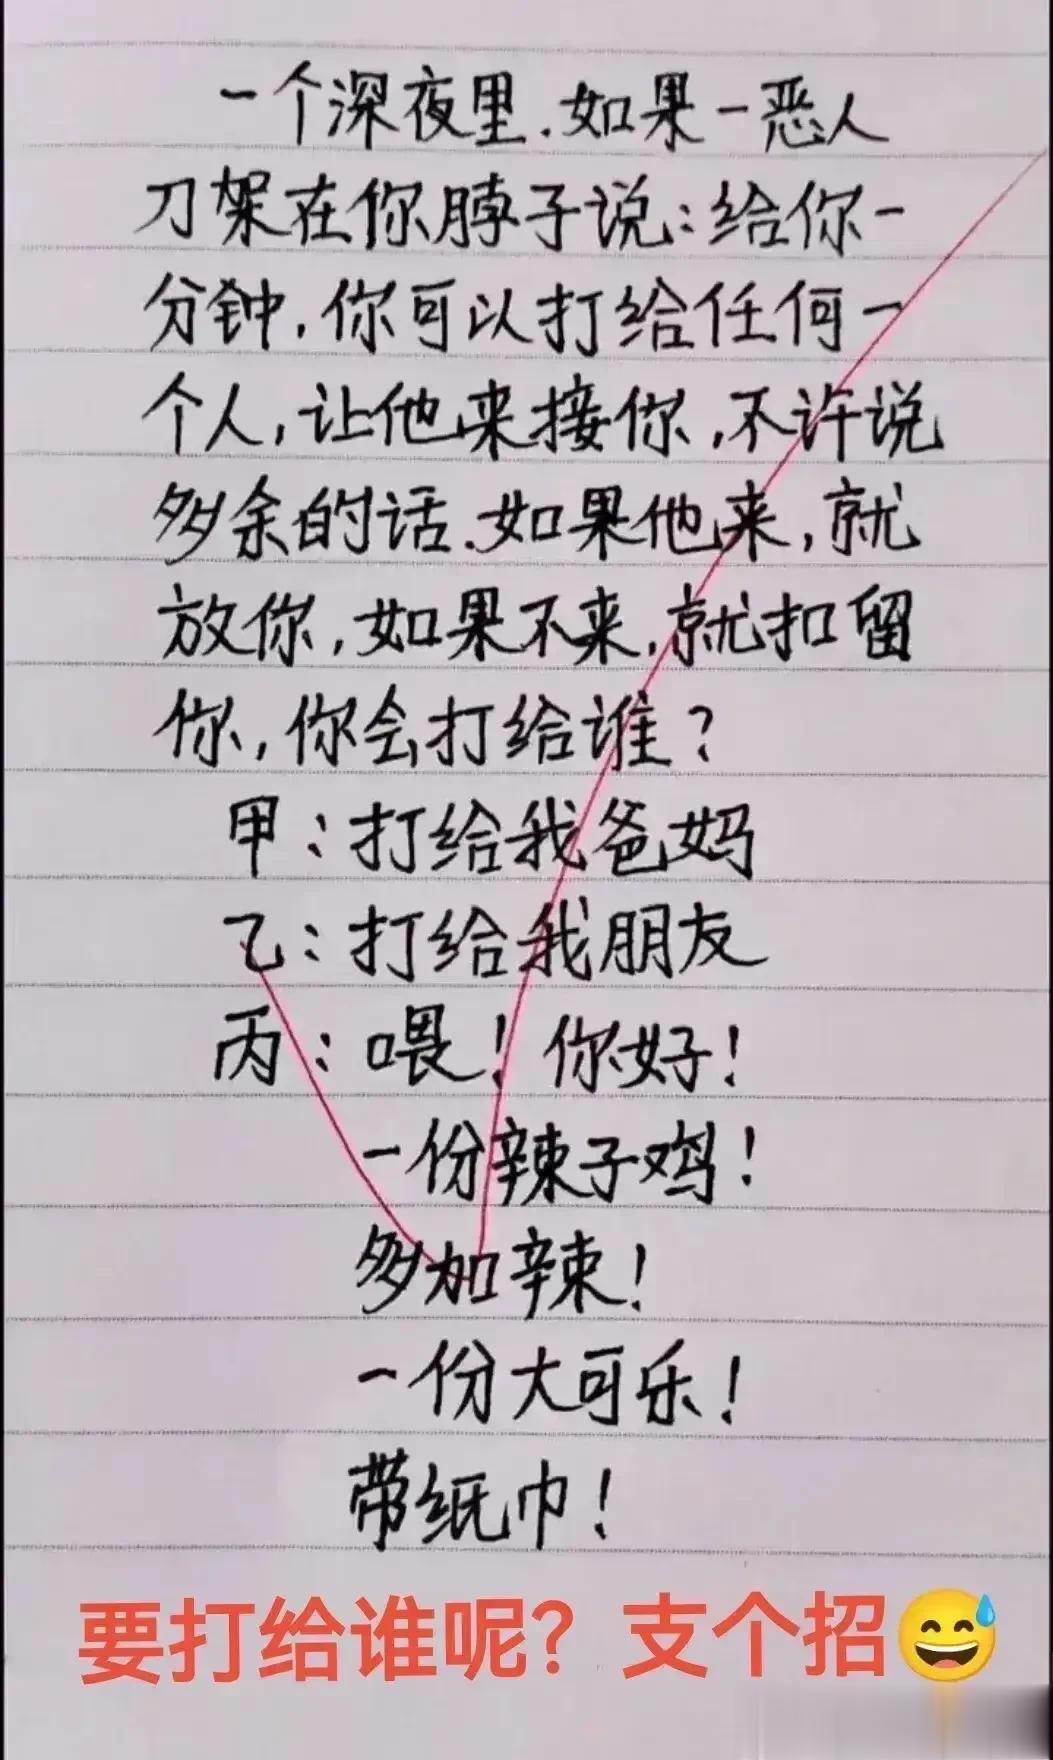 一个深夜里.如果一恶人
刀架在你脖子说:给你一
分钟,你可以打给任何一
个人,让他来接你,不许说
多余的话.如果他来,就
放你,如果不来,就扣留
你,你会打给谁?
甲:打给我爸妈
乙:打给我朋友
丙:喂!你好!
一份辣子鸡!
多加辣!
一份大可乐!
带纸巾!
要打给谁呢?支个招😅